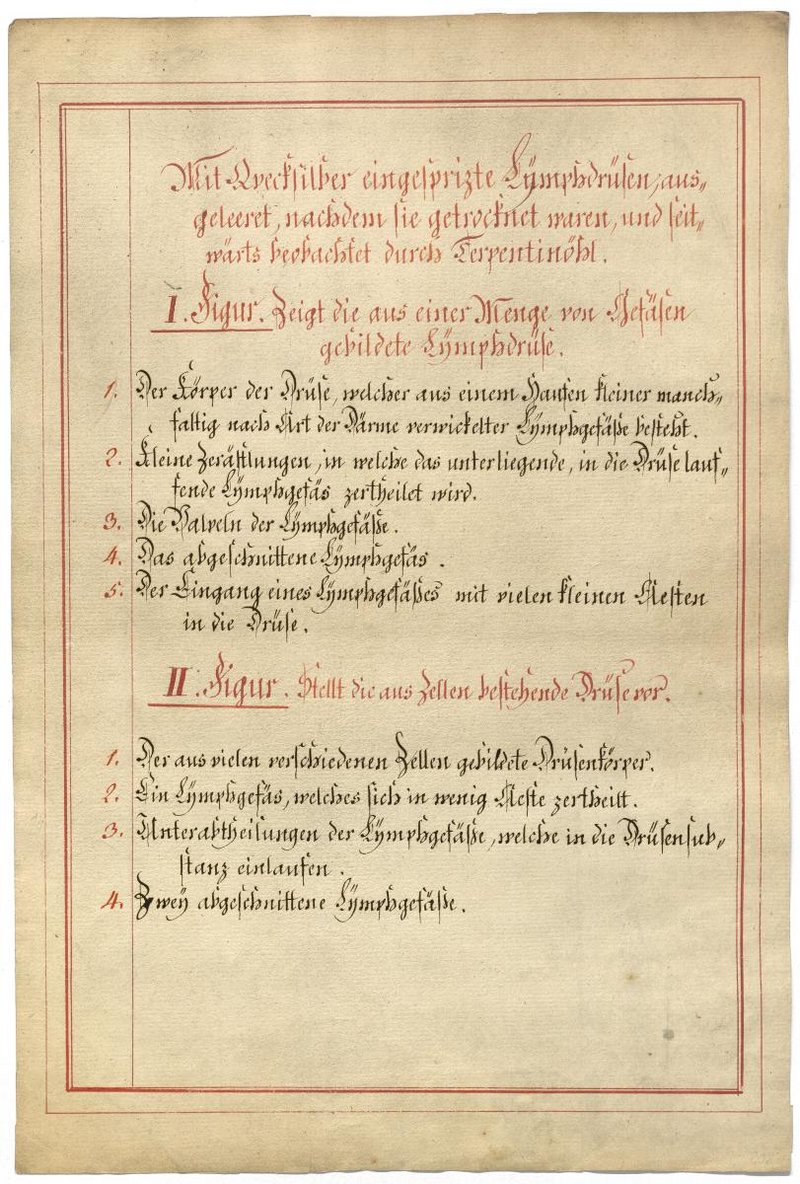 Mit Qvecksilber eingesprizte Lÿmphdrüsen, aus„
geleeret, nachdem sie getrocknet waren, und seit„
wärts beobachtet durch Terpentinöhl.
I. Figur. Zeigt die aus einer Menge von Gefäsen
gebildete Lÿmphdrüse.
1. Der Körper der Drüse, welcher aus einem Haufen kleiner manch„
faltig nach Art der Därme verwickelter Lÿmphgefäße besteht.
2. Kleine Zerästlungen, in welche das unterliegende, in die Drüse lauf„
fende Lÿmphgefäs zertheilet wird.
3. Die Valveln der Lÿmphgefäße.
4. Das abgeschnittene Lÿmphgefäs.
5. Der Eingang eines Lÿmphgefäßes mit vielen kleinen Aesten
in die Drüse.
II. Figur. Stellt die aus Zellen bestehende Drüse vor.
1. Der aus vielen verschiedenen Zellen gebildete Drüsenkörper.
2. Ein Lÿmphgefäs, welches sich in wenig Aeste zertheilt.
3. Unterabtheilungen der Lÿmphgefäße, welche in die Drüsensub„
stanz einlaufen.
4. Zweÿ abgeschnittene Lÿmphgefäße.